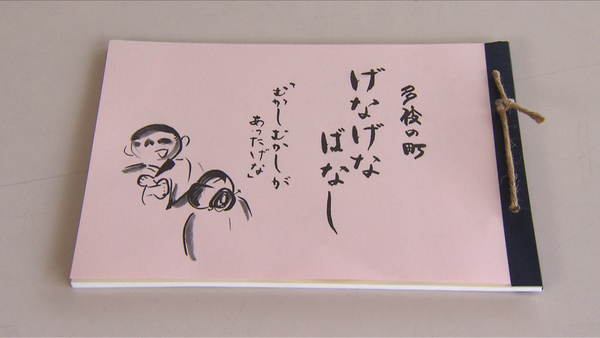 多伎の町
げなげな
ばなし
「むかしむかしが
あったげな」